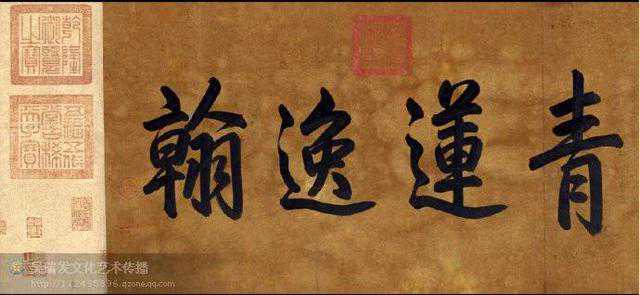 青蓮逸翰
乾隆御覽之寶
吴瑞发文化艺术传播
http://112495896.qzone.qq.com